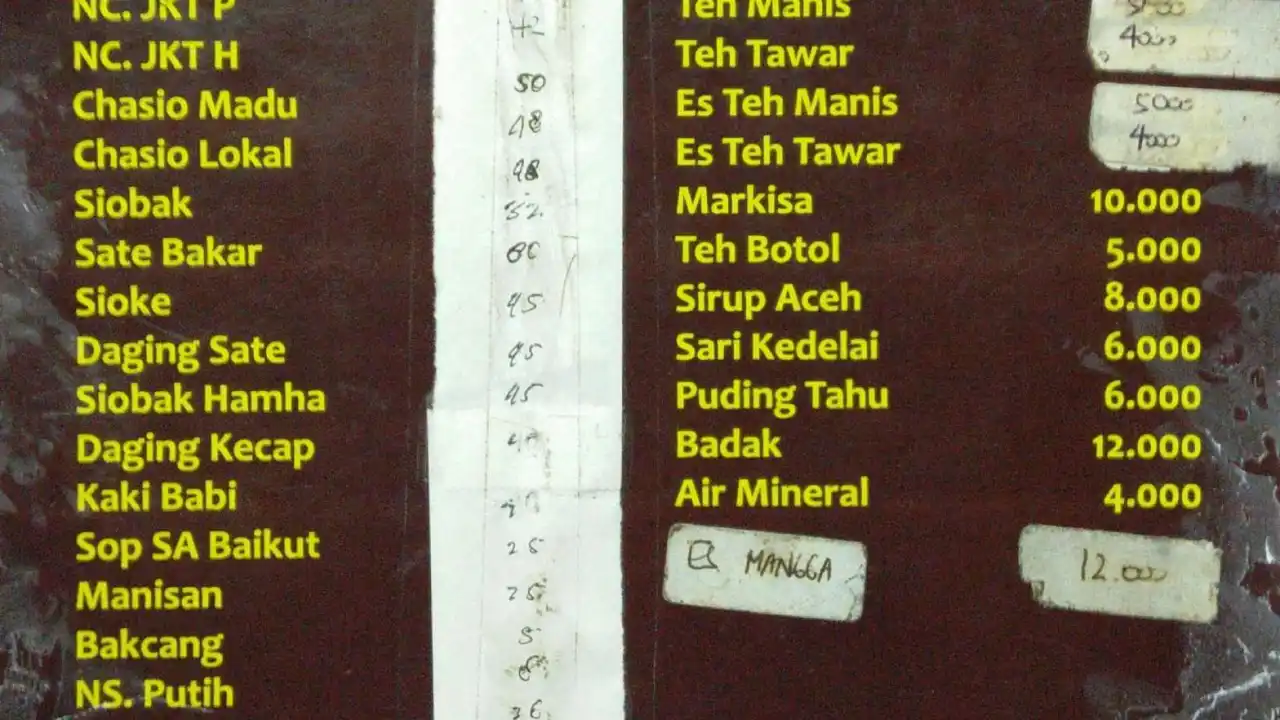 NC. JKT P
NC. JKT H
50
Chasio Madu
48
Chasio Lokal
48
Siobak
52
Sate Bakar
Sioke
45
Daging Sate
45
Siobak Hamha
45
Daging Kecap
Kaki Babi
Sop SA Baikut
25
Manisan
25
Bakcang
5
NS. Putih
Teh Manis
Teh Tawar 4000
Es Teh Manis 5000
Es Teh Tawar 4000
Markisa 10.000
Teh Botol 5.000
Sirup Aceh 8.000
Sari Kedelai 6.000
Puding Tahu 6.000
Badak 12.000
Air Mineral 4.000
ES MANGGA 12.000